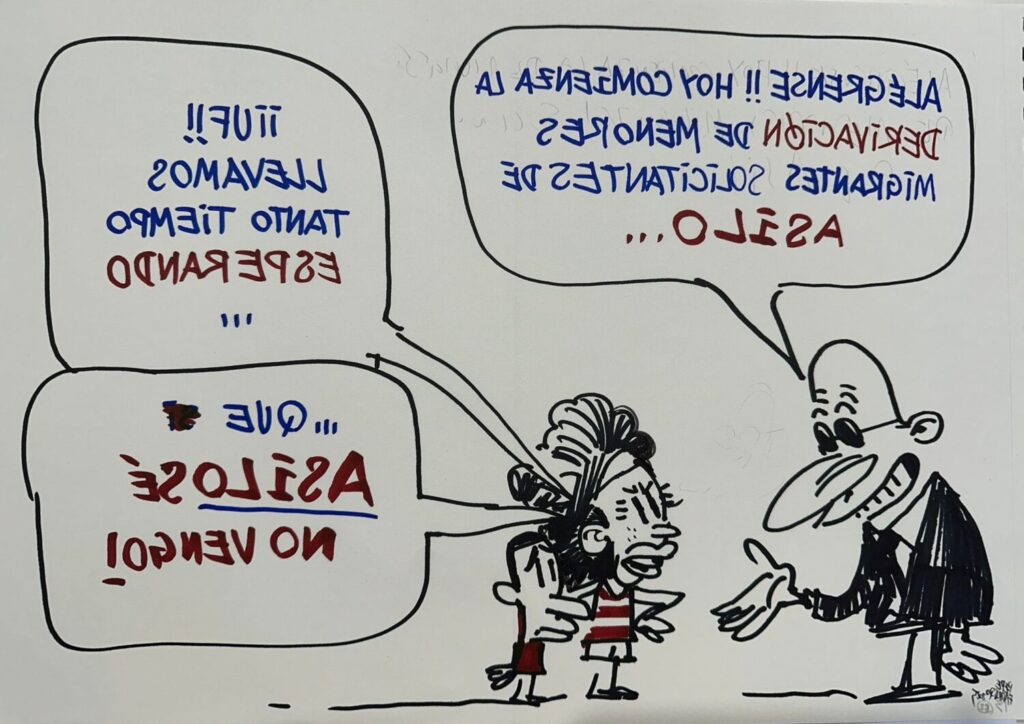 ALÉGRENSE!! HOY COMIENZA LA
DERIVACIÓN DE MENORES
MIGRANTES SOLICITANTES DE
ASILO...
¡¡UF!!
LLEVAMOS
TANTO TIEMPO
ESPERANDO
...
...QUE
ASÍLOSÉ
NO VENGO!